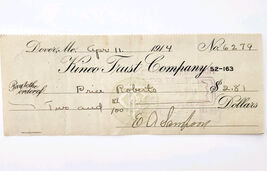 Dover, Me. Apr 11 1914 No. 6279
Kineo Trust Company 52-163
Pay to the order of Price Roberts $2.81
Two and 81/100 Dollars
E. A.